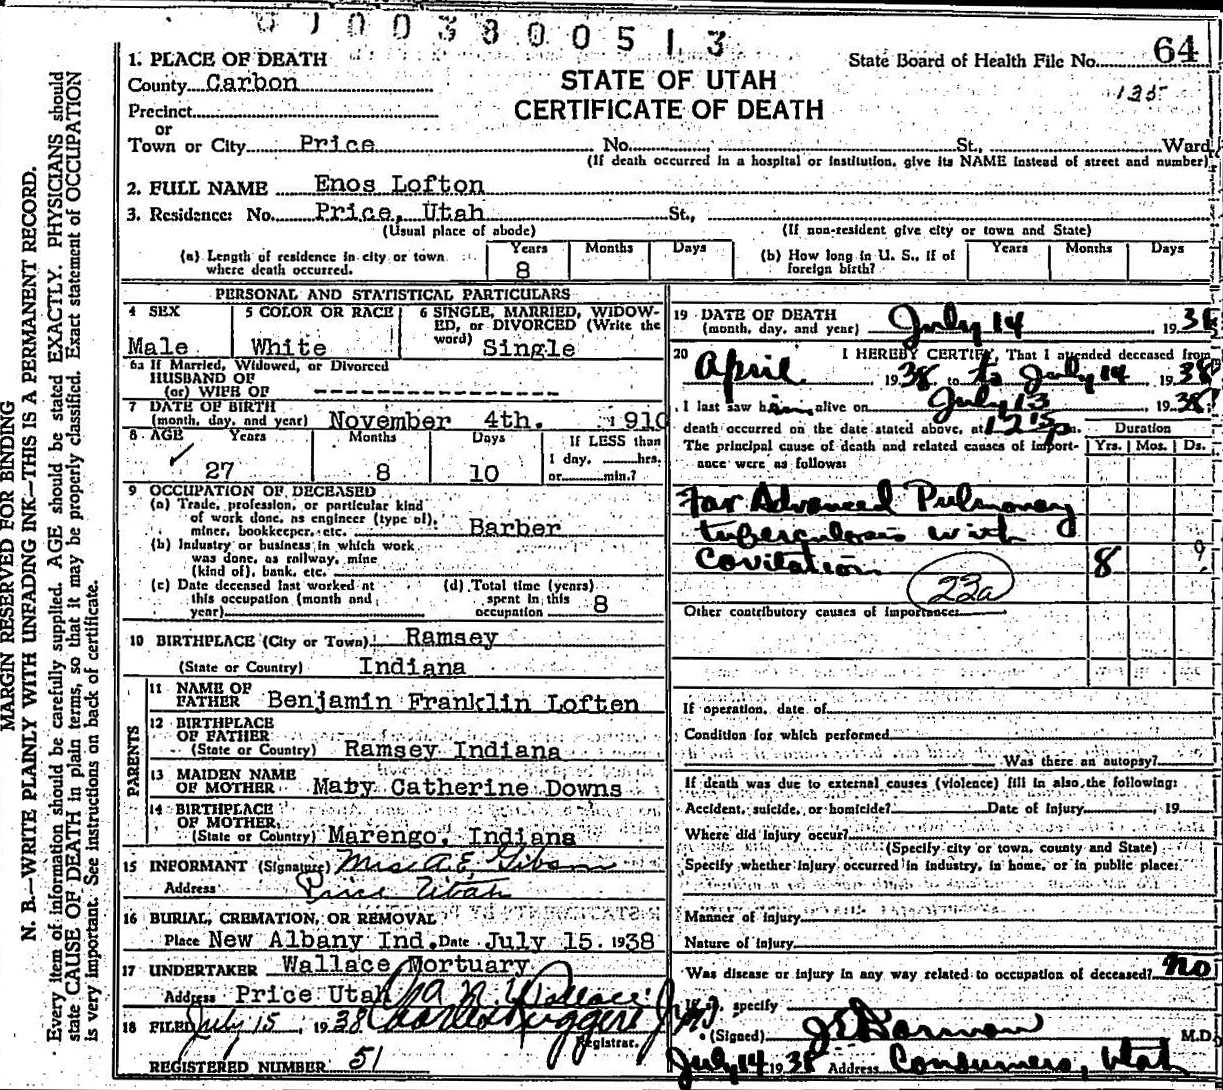 6 1 0 0 3 8 0 0 5 1 3
1. PLACE OF DEATH
State Board of Health File No. 64
County Carbon
STATE OF UTAH
135
Precinct
CERTIFICATE OF DEATH
or
Town or City Price No. St., Ward
(If death occurred in a hospital or institution, give its NAME instead of street and number)
2. FULL NAME Enos Lofton
3. Residence: No. Price, Utah St.,
(Usual place of abode) (If non-resident give city or town and State)
(a) Length of residence in city or town where death occurred. Years 8 Months Days
(b) How long in U. S., if of foreign birth? Years Months Days
PERSONAL AND STATISTICAL PARTICULARS
4 SEX Male
5 COLOR OR RACE White
6 SINGLE, MARRIED, WIDOW-
ED, or DIVORCED (Write the
word) Single
6a If Married, Widowed, or Divorced
HUSBAND OF
(or) WIFE OF ----------------
7 DATE OF BIRTH
(month, day, and year) November 4th. 1910
8 AGE Years Months Days If LESS than
1 day, hrs.
27 8 10 or min.?
9 OCCUPATION OF DECEASED
(a) Trade, profession, or particular kind
of work done, as engineer (type of),
miner, bookkeeper, etc. Barber
(b) Industry or business in which work
was done, as railway, mine
(kind of), bank, etc.
(c) Date deceased last worked at
this occupation (month and
year)
(d) Total time (years)
spent in this
occupation 8
10 BIRTHPLACE (City or Town) Ramsey
(State or Country) Indiana
PARENTS
11 NAME OF
FATHER Benjamin Franklin Loften
12 BIRTHPLACE
OF FATHER
(State or Country) Ramsey Indiana
13 MAIDEN NAME
OF MOTHER Maby Catherine Downs
14 BIRTHPLACE
OF MOTHER
(State or Country) Marengo, Indiana
15 INFORMANT (Signature) Mrs A E, Gibson
Address Price Utah
16 BURIAL, CREMATION, OR REMOVAL
Place New Albany Ind. Date July 15. 1938
17 UNDERTAKER Wallace Mortuary
Address Price Utah N. Wallace
18 FILED July 15, 1938 Charles Ruggeri Jr
Registrar.
REGISTERED NUMBER 51
19 DATE OF DEATH
(month, day, and year) July 14 1938
20 I HEREBY CERTIFY, That I attended deceased from
April 1938 to to July 14 1938
I last saw him alive on July 13 1938
death occurred on the date stated above, at 12 15 p m. Duration
The principal cause of death and related causes of import-
ance were as follows: Yrs. Mos. Ds.
Far Advanced Pulmonary
tuberculosis with
Covitation 8 ?
23a
Other contributory causes of importance
If operation, date of
Condition for which performed
Was there an autopsy?
If death was due to external causes (violence) fill in also the following:
Accident, suicide, or homicide? Date of injury , 19
Where did injury occur?
(Specify city or town, county and State)
Specify whether injury occurred in industry, in home, or in public place:
Manner of injury
Nature of injury
Was disease or injury in any way related to occupation of deceased? no
If specify
(Signed) M.D.
July 14 1938 Address Consumers, Utah
MARGIN RESERVED FOR BINDING
N. B.—WRITE PLAINLY WITH UNFADING INK—THIS IS A PERMANENT RECORD.
Every item of information should be carefully supplied. AGE should be stated EXACTLY. PHYSICIANS should
state CAUSE OF DEATH in plain terms, so that it may be properly classified. Exact statement of OCCUPATION
is very important. See instructions on back of certificate.